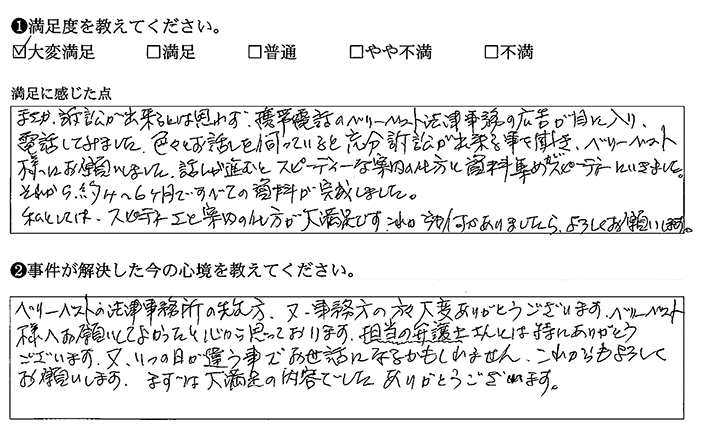 ❶満足度を教えてください。
☑大変満足 □満足 □普通 □やや不満 □不満
満足に感じた点
まさか、訴訟が出来るとは思わず、携帯電話のベリーベスト法律事務の広告が目に入り、
電話してみました。色々お話しを伺っていると充分訴訟が出来る事を聞き、ベリーベスト
様へお願いしました。話しが進むとスピーディーな案内の仕方と資料集めがスピーディーにいきました。
それから、約4〜6ヶ月ですべての資料が完成しました。
私としては、スピーディーさと案内の仕方が大満足です。これから何かありましたら、よろしくお願いします。
❷事件が解決した今の心境を教えてください。
ベリーベストの法律事務所の先生方、又、事務方の方々大変ありがとうございます。ベリーベスト
様へお願いしてよかったと心から思っております。担当の弁護士さんには特にありがとう
ございます。又、いつの日か違う事でお世話になるかもしれません。これからもよろしく
お願いします。まずは大満足の内容でした ありがとうございます。